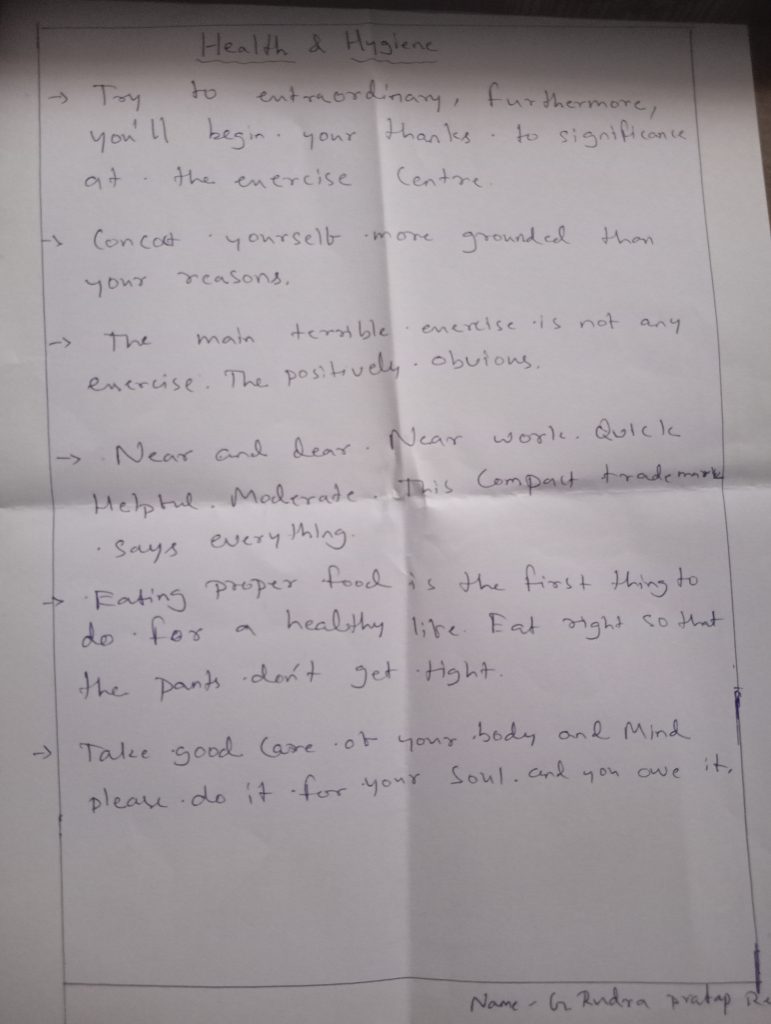 Health & Hygiene
→ Try to entraordinary, furthermore,
you'll begin. your thanks. to significance
at. the enercise Centre.
→ Concoct yourself more grounded than
your reasons.
→ The main terrible. enercise is not any
enercise. The positively. obvious.
→ Near and dear. Near work. Quick
Helpful. Moderate. This Compact trademark
says everything.
→ Eating proper food is the first thing to
do for a healthy life. Eat right so that
the pants don't get tight.
→ Take good Care of your body and Mind
please do it for your Soul. and you owe it.
Name - G Rudra pratap